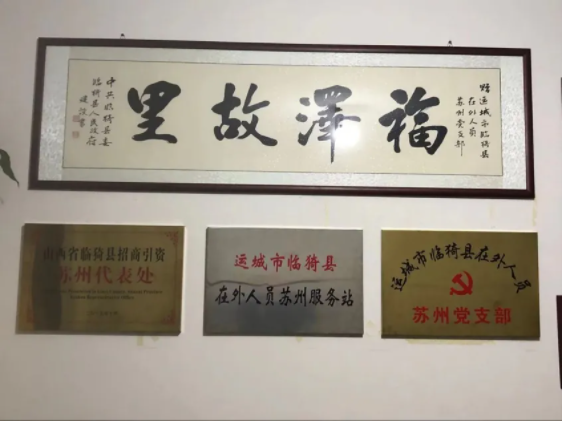 福澤故里
赠运城市临猗县
在外人员
苏州党支部
中共临猗县委
临猗县人民政府
山西省临猗县招商引资
苏州代表处
运城市临猗县
在外人员苏州服务站
运城市临猗县在外人员
苏州党支部